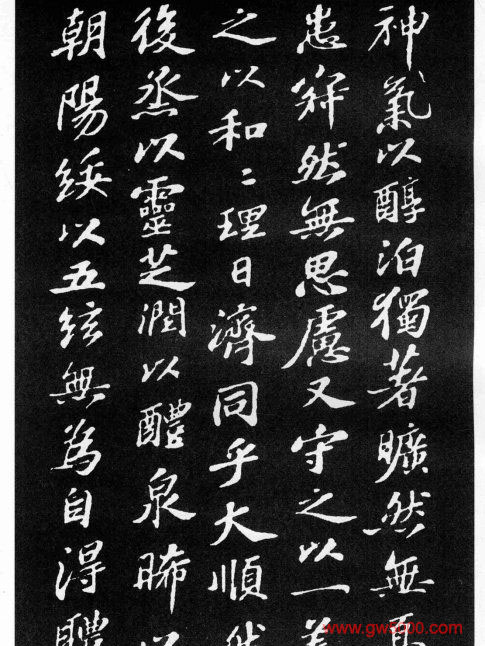 神氣以醇泊獨著曠然無
患寂然無思慮又守之以一
之以和〻理日濟同乎大順
後烝以靈芝潤以醴泉晞以
朝陽綏以五弦無為自得體
www.gw5000.com